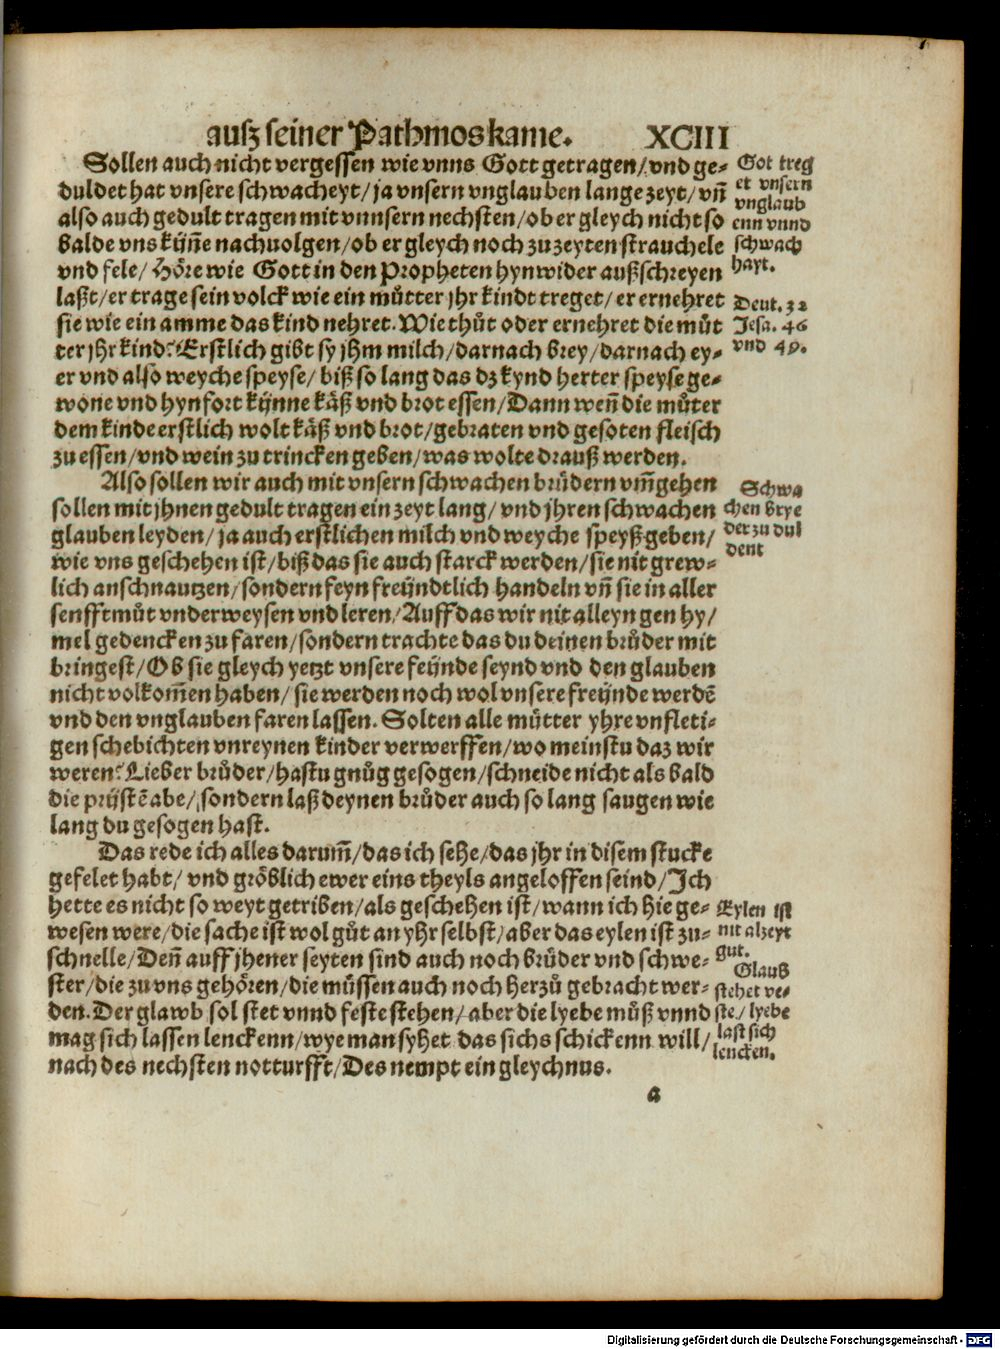 ausz seiner Pathmos kame. XCIII
Sollen auch nicht vergessen wie vnns Gott getragen/ vnd ge-
duldet hat vnsere schwacheyt/ ja vnsern vnglauben lange zeyt/ vñ
also auch gedult tragen mit vnnsern nechsten/ ob er gleych nicht so
balde vns kÿñe nachuolgen/ ob er gleych noch zu zeyten strauchele
vnd fele/ Höre wie Gott in den Propheten hynwider außschreyen
laßt/ er trage sein volck wie ein můtter jhr kindt treget/ er ernehret
sie wie ein amme das kind nehret. Wie thůt oder ernehret die můt
ter jhr kind? Erstlich gibt sy jhm milch/ darnach brey/ darnach ey-
er vnd also weyche speyse/ biß so lang das dz kynd herter speyse ge-
wone vnd hynfort kÿnne käß vnd brot essen/ Dann weñ die můter
dem kinde erstlich wolt käß vnd brot/ gebraten vnd gesoten fleisch
zu essen/ vnd wein zu trincken geben/ was wolte drauß werden.
Got treg
et vnsern
vnglaub
enn vnnd
schwach
hayt.
Deut. 32
Jesa. 46
vnd 49.
Also sollen wir auch mit vnsern schwachen brůdern vm̃gehen
sollen mit jhnen gedult tragen ein zeyt lang/ vnd jhren schwachen
glauben leyden/ ja auch erstlichen milch vnd weyche speyß geben/
wie vns geschehen ist/ biß das sie auch starck werden/ sie nit grew-
lich anschnautzen/ sondern feyn freÿndtlich handeln vñ sie in aller
senfftmůt vnderweysen vnd leren/ Auff das wir nit alleyn gen hy/
mel gedencken zu faren/ sondern trachte das du deinen brůder mit
bringest/ Ob sie gleych yetzt vnsere feÿnde seynd vnd den glauben
nicht volkom̃en haben/ sie werden noch wol vnsere freÿnde werdẽ
vnd den vnglauben faren lassen. Solten alle můtter yhre vnfleti-
gen schebichten vnreynen kinder verwerffen/ wo meinstu daz wir
weren? Lieber brůder/ hastu gnůg gesogen/ schneide nicht als bald
die prÿstẽ abe/ sondern laß deynen brůder auch so lang saugen wie
lang du gesogen hast.
Schwa
chen brye
der zu dul
dent
Das rede ich alles darum̃/ das ich sehe/ das jhr in disem stucke
gefelet habt/ vnd gröblich ewer eins theyls angeloffen seind/ Ich
hette es nicht so weyt getriben/ als geschehen ist/ wann ich hie ge-
wesen were/ die sache ist wol gůt an yhr selbst/ aber das eylen ist zu-
schnelle/ Deñ auff jhener seyten sind auch noch brůder vnd schwe-
ster/ die zu vns gehören/ die müssen auch noch herzů gebracht wer-
den. Der glawb sol stet vnnd feste stehen/ aber die lyebe můß vnnd
mag sich lassen lenckenn/ wye man syhet das sichs schickenn will/
nach des nechsten notturfft/ Des nempt ein gleychnus.
Eylen ist
nit alzeyt
gut.
Glaub
stehet ve-
ste/ lyebe
last sich
lencken.
a
Digitalisierung gefördert durch die Deutsche Forschungsgemeinschaft - DFG